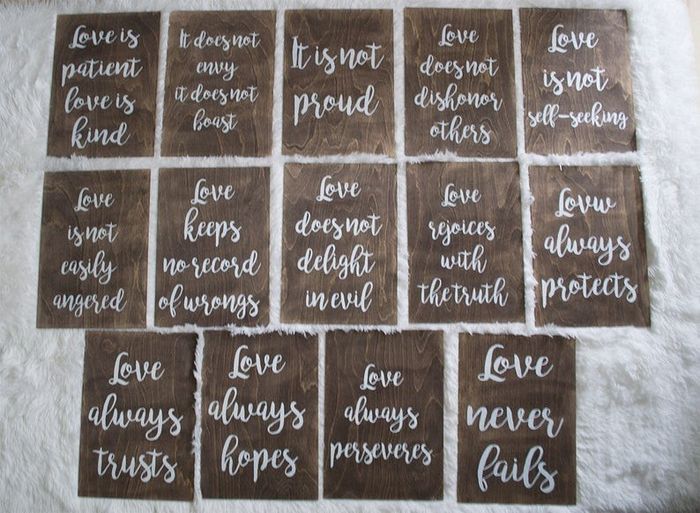 Love is
patient
love is
kind
It does not
envy
it does not
boast
It is not
proud
Love
does not
dishonor
others
Love
is not
self-seeking
Love
is not
easily
angered
Love
keeps
no record
of wrongs
Love
does not
delight
in evil
Love
rejoices
with
the truth
Lovw
always
protects
Love
always
trusts
Love
always
hopes
Love
always
perseveres
Love
never
fails